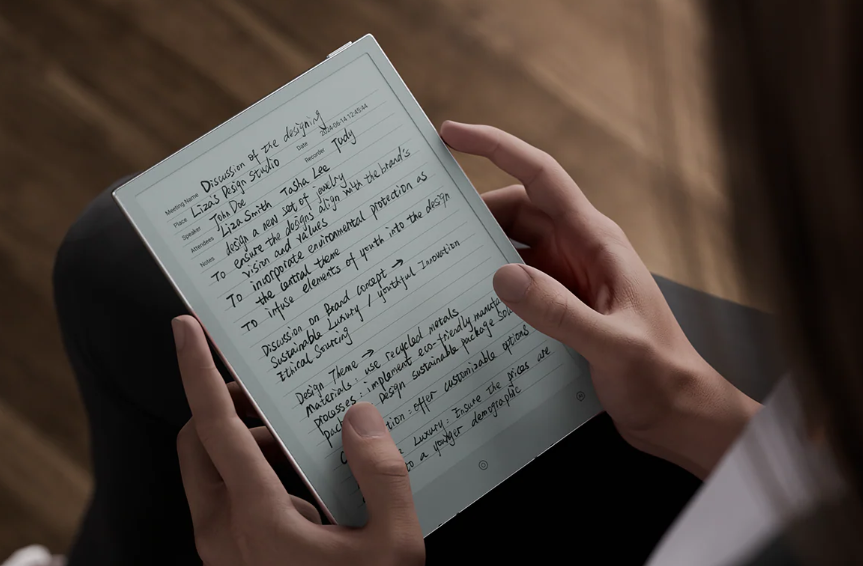 Meeting Name Discussion of the designing
Place Liza's Design Studio Date 2024-06-14 12:45:44
Speaker John Doe Recorder Judy
Attenders Liza Smith Tasha Lee
Notes design a new set of jewelry
To ensure the designs align with the brand's
vision and values
To incorporate environmental protection as
the central theme
To infuse elements of youth into the design
Discussion on Brand concept →
Sustainable Luxury / youthful Innovation
Ethical Sourcing
Design Theme →
materials: use recycled metals
processes: implement eco-friendly
Design sustainable package
offer customizable options
Luxury: Insure the prices are
to a younger demographic